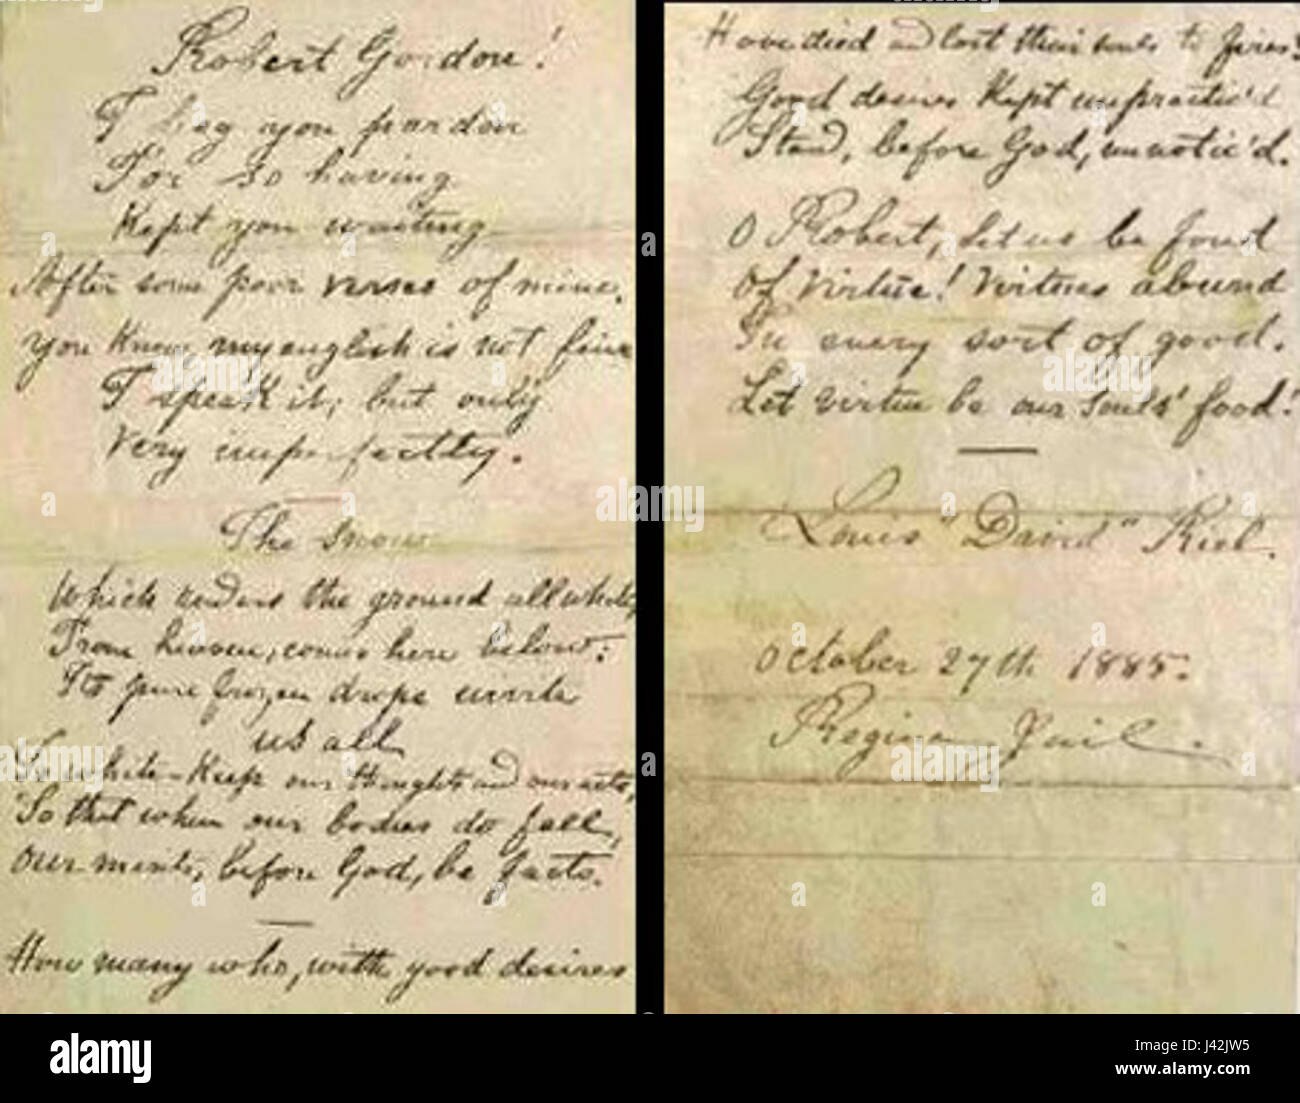 Robert Gordon!
I beg you pardon
For so having
Kept you waiting
After some poor verses of mine.
you know, my english is not fine
I speak it; but only
Very imperfectly.
The snow
Which renders the ground all white,
From heaven, comes here below:
Its pure frozen drops invite
us all
To white-keep our thoughts and our acts,
So that when our bodies do fall,
Our merits, before God, be facts.
How many who, with good desires
Have died and lost their souls to fires?
Good desires kept unpractic'd
Stand, before God, unnotic'd.
O Robert, let us be fond
Of virtue! Virtues abound
In every sort of good.
Let virtue be our souls' food!
Louis "David" Riel.
October 27th 1885.
Regina Jail.
a
alamy stock photo
J42JW5
www.alamy.com